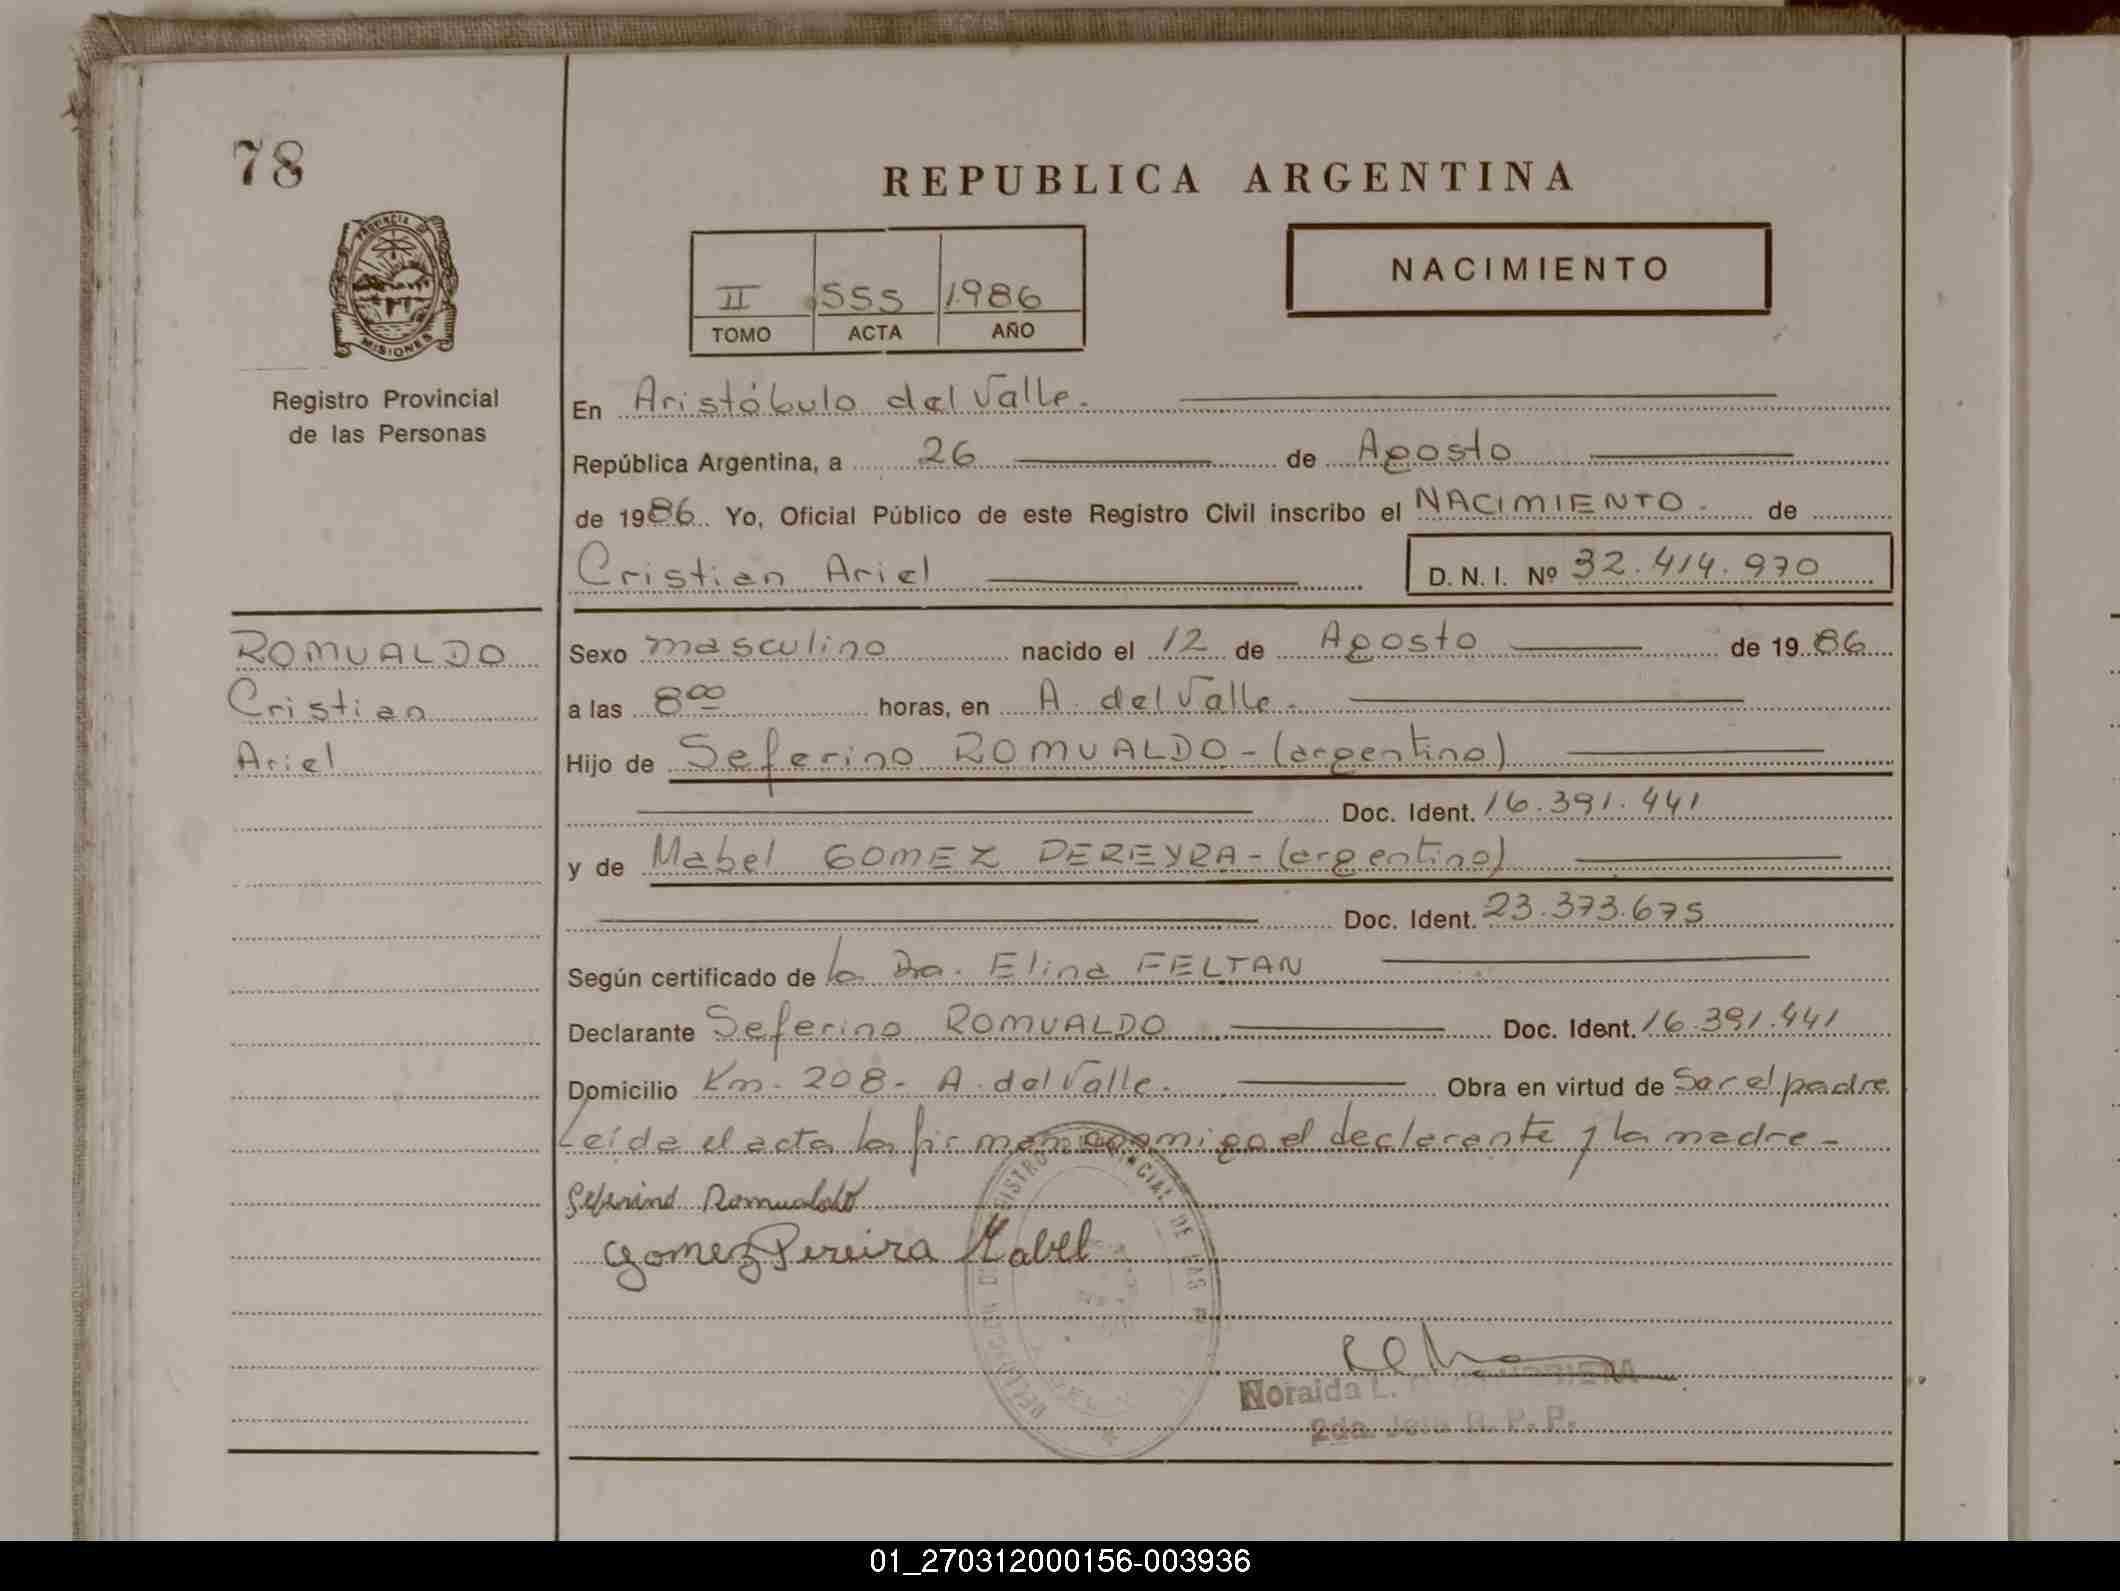 78
REPUBLICA ARGENTINA
PROVINCIA DE
MISIONES
Registro Provincial
de las Personas
NACIMIENTO
II 555 1986
TOMO ACTA AÑO
En Aristóbulo del Valle.
República Argentina, a 26 de Agosto
de 1986. Yo, Oficial Público de este Registro Civil inscribo el NACIMIENTO. de
Cristian Ariel D. N. I. Nº 32.414.970
ROMUALDO
Cristian
Ariel
Sexo masculino nacido el 12 de Agosto de 1986
a las 8 00 horas, en A. del Valle.
Hijo de Seferino ROMUALDO - (argentino)
Doc. Ident. 16.391.441
y de Mabel GOMEZ PEREYRA - (argentina)
Doc. Ident. 23.373.675
Según certificado de la Dra. Elina FELTAN
Declarante Seferino ROMUALDO Doc. Ident. 16.391.441
Domicilio Km. 208 - A. del Valle. Obra en virtud de Ser el padre
Leída el acta la firman conmigo el declarante y la madre -
Seferino Romualdo
Gomez Pereira Mabel
Noraida L.
2da. Jefa R. P. P.
01_270312000156-003936